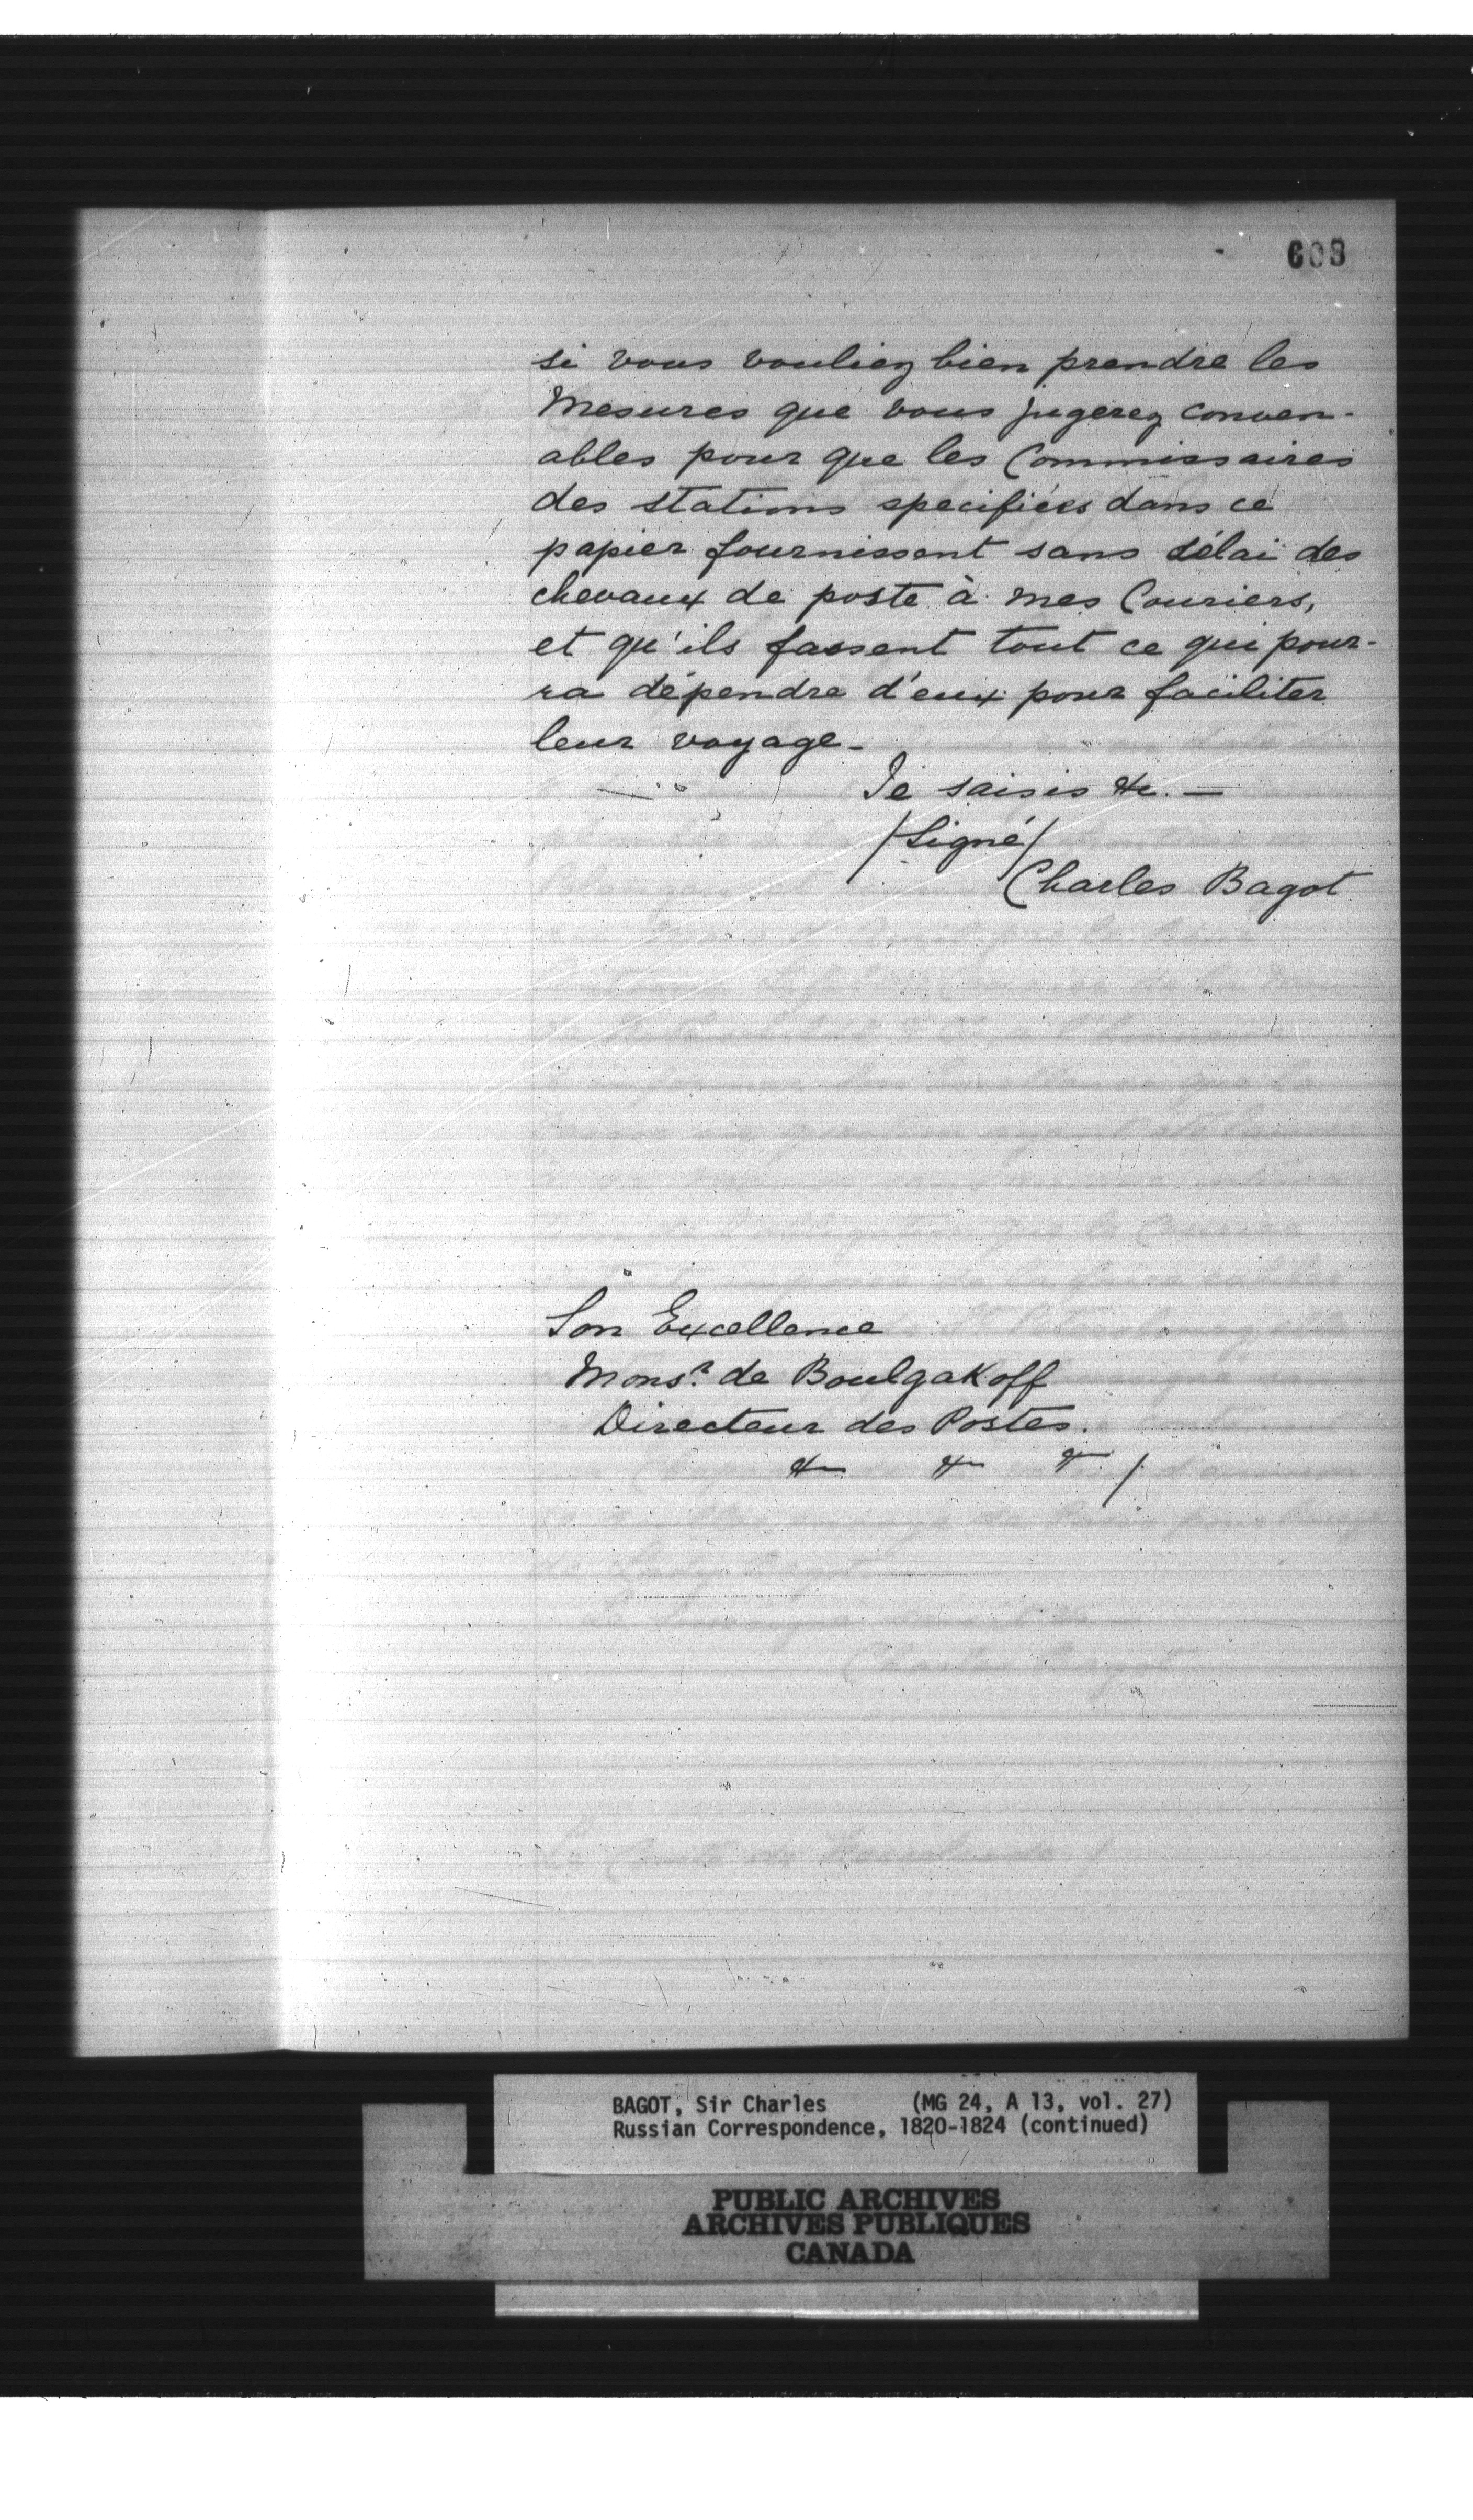 608
si vous vouliez bien prendre les
Mesures que vous jugerez conven-
ables pour que les Commissaires
des stations specifiées dans ce
papier fournissent sans délai des
chevaux de poste à mes Couriers,
et qu'ils fassent tout ce qui pour-
ra dépendre d'eux pour faciliter
leur voyage_
Je saisis &c. —
/Signé/
Charles Bagot
Son Excellence
Mons.r de Boulgakoff
Directeur des Postes.
&c &c &c /
BAGOT, Sir Charles (MG 24, A 13, vol. 27)
Russian Correspondence, 1820-1824 (continued)
PUBLIC ARCHIVES
ARCHIVES PUBLIQUES
CANADA